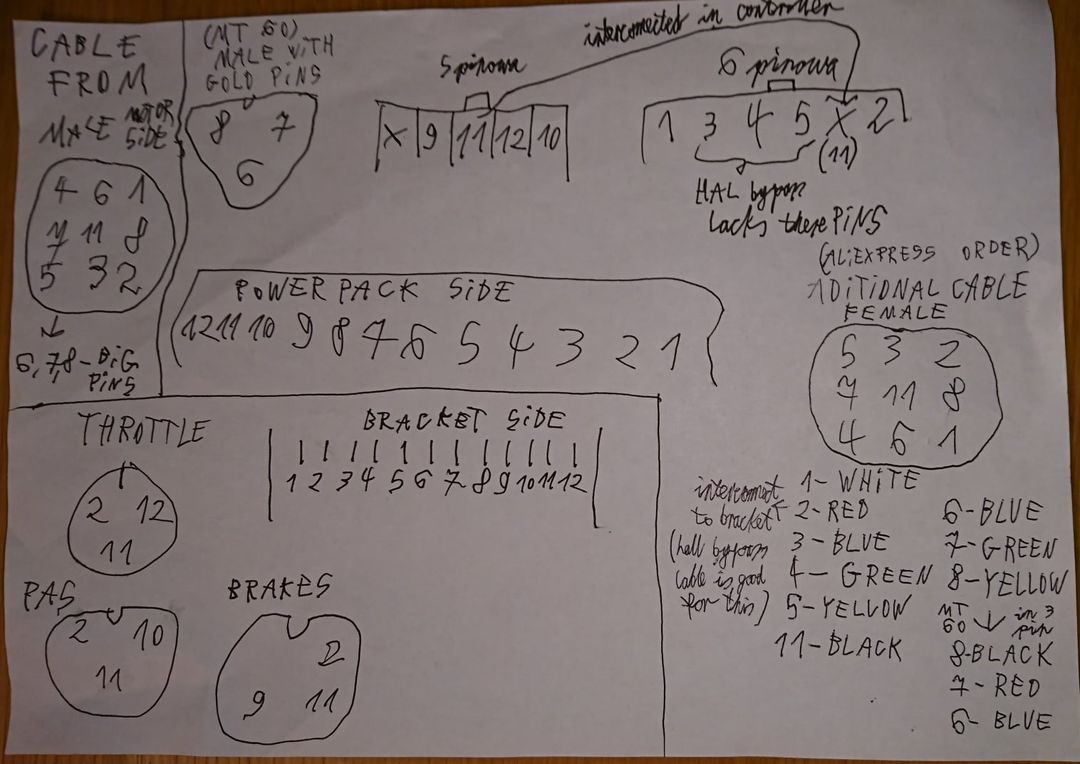 CABLE
FROM
MOTOR
SIDE
MALE
4 6 1
7 11 8
5 3 2
6,7,8 - BIG
PINS
(MT 60)
MALE WITH
GOLD PINS
8 7
6
5 pinowa
X 9 11 12 10
interconnected in controller
6 pinowa
1 3 4 5 X 2
(11)
HAL bypass
lacks these PINS
POWER PACK SIDE
12 11 10 9 8 7 6 5 4 3 2 1
(ALIEXPRESS ORDER)
ADITIONAL CABLE
FEMALE
5 3 2
7 11 8
4 6 1
THROTTLE
2 12
11
BRACKET SIDE
1 2 3 4 5 6 7 8 9 10 11 12
PAS
2 10
11
BRAKES
2
9 11
interconnect
to bracket
(hall bypass
cable is good
for this)
1 - WHITE
2 - RED
3 - BLUE
4 - GREEN
5 - YELLOW
11 - BLACK
6 - BLUE
7 - GREEN
8 - YELLOW
MT
60
in 3
pin
8 - BLACK
7 - RED
6 - BLUE